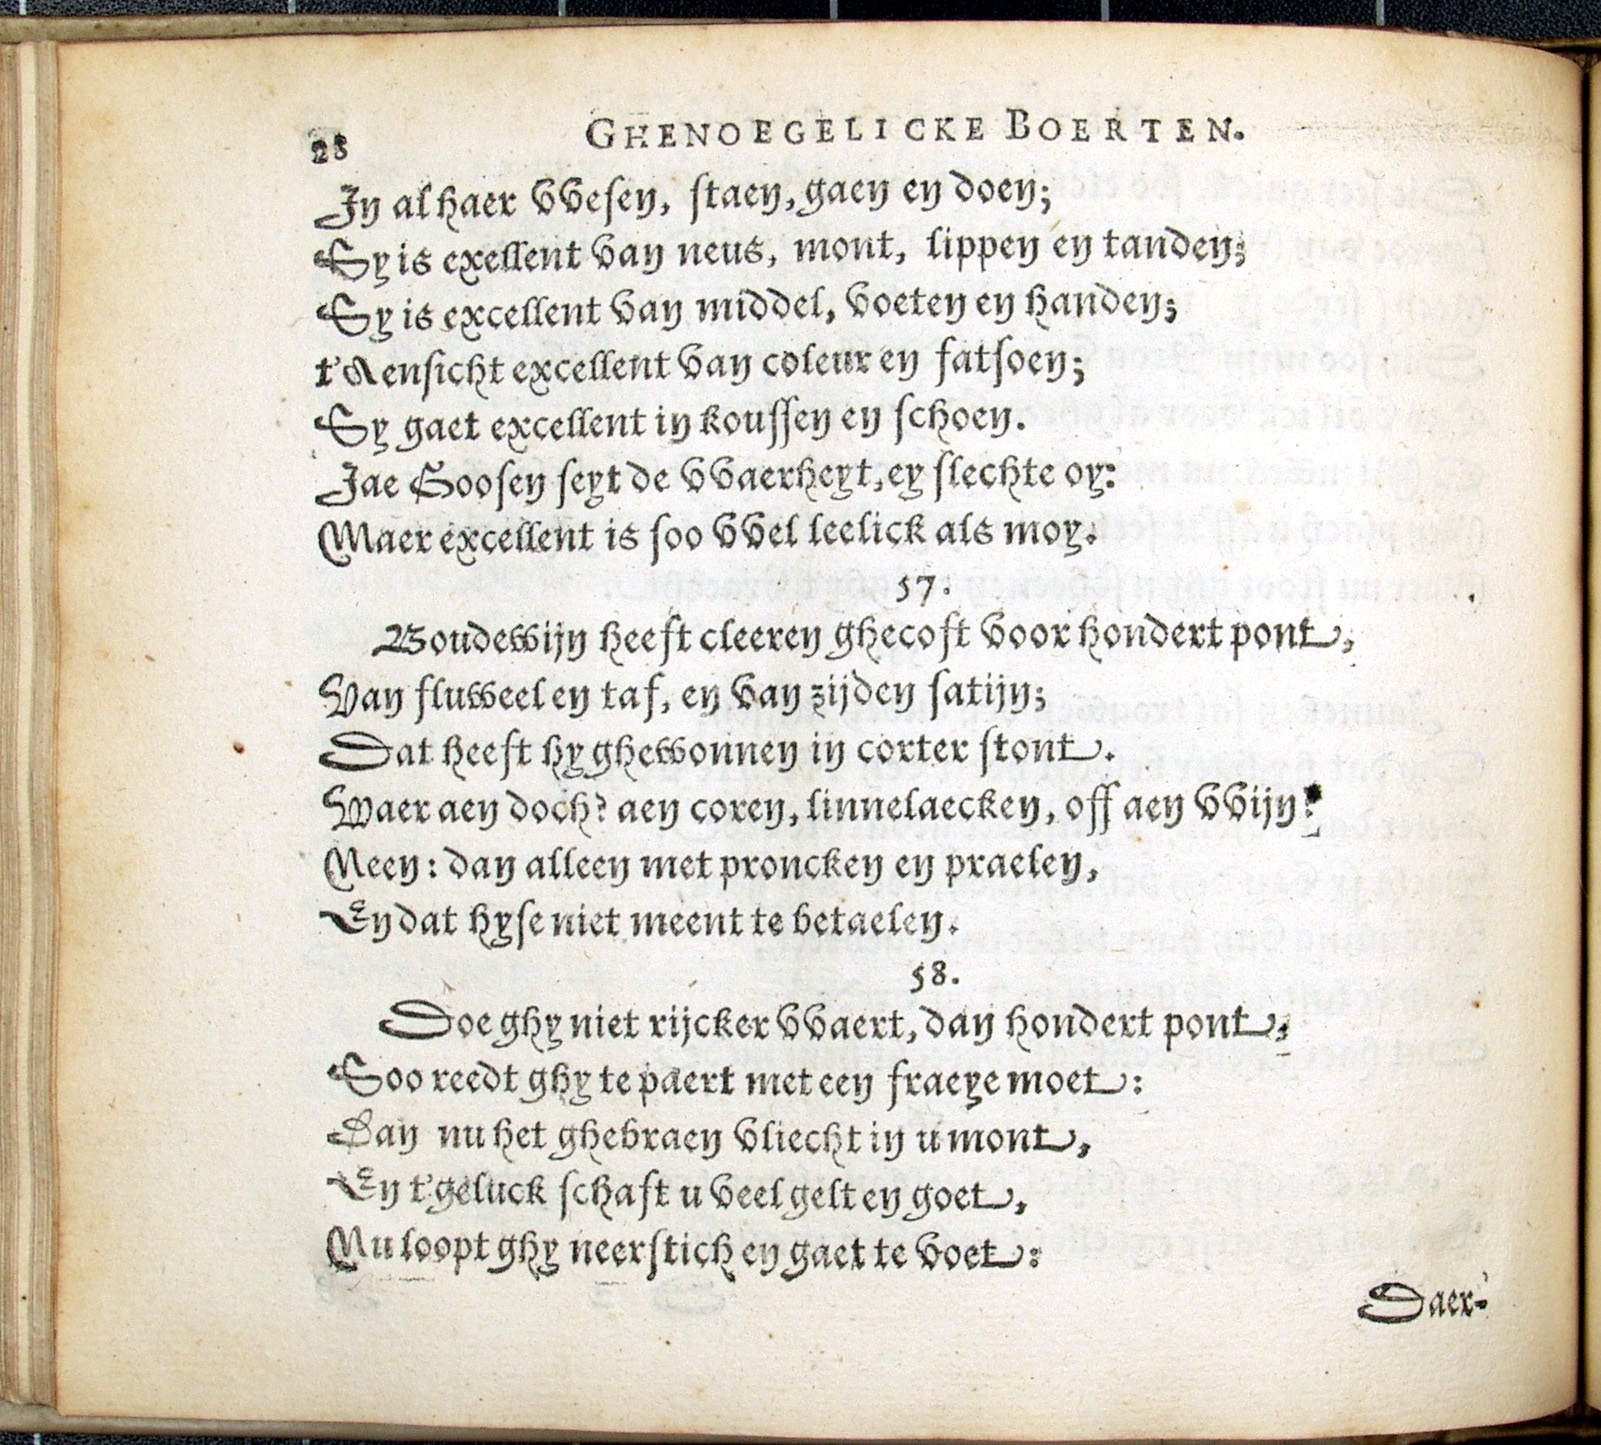 28 GHENOEGELICKE BOERTEN.
In al haer VVesen, staen, gaen en doen;
Sy is exellent van neus, mont, lippen en tanden;
Sy is excellent van middel, voeten en handen;
t'Aensicht excellent van coleur en fatsoen;
Sy gaet excellent in koussen en schoen.
Jae Goosen seyt de VVaerheyt, ey slechte oy:
Maer excellent is soo VVel leelick als moy.
57.
Boudewijn heeft cleeren ghecoft voor hondert pont,
Van fluweel en taf, en van zijden satijn;
Dat heeft hy ghewonnen in corter stont.
Waer aen doch? aen coren, linnelaecken, off aen VVijn?
Neen: dan alleen met proncken en praelen,
En dat hyse niet meent te betaelen.
58.
Doe ghy niet rijcker VVaert, dan hondert pont,
Soo reedt ghy te paert met een fraeye moet:
Dan nu het ghebraen vliecht in u mont,
En t'geluck schaft u veel gelt en goet,
Nu loopt ghy neerstich en gaet te voet:
Daer-